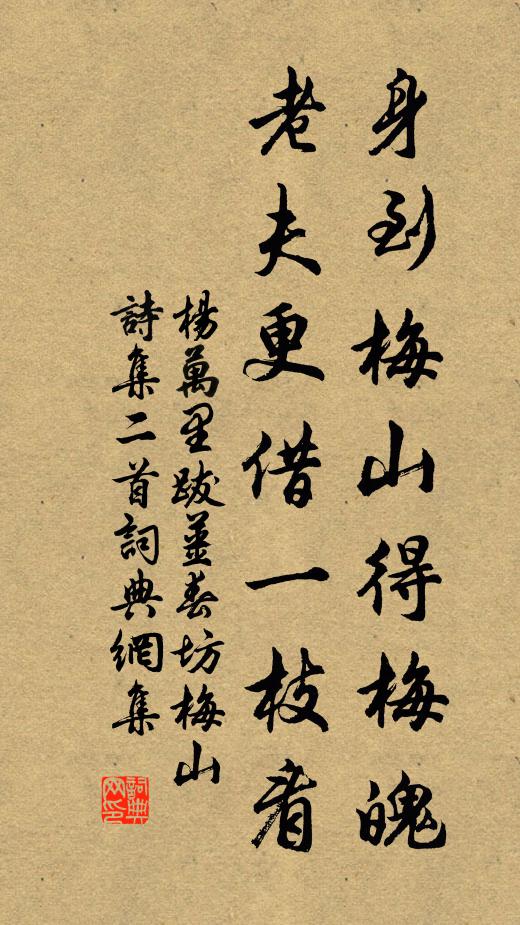 身到梅山得梅魄
老夫更借一枝看
楊萬里跋薑春坊梅山
詩集二首詞典網集
詞典
网印